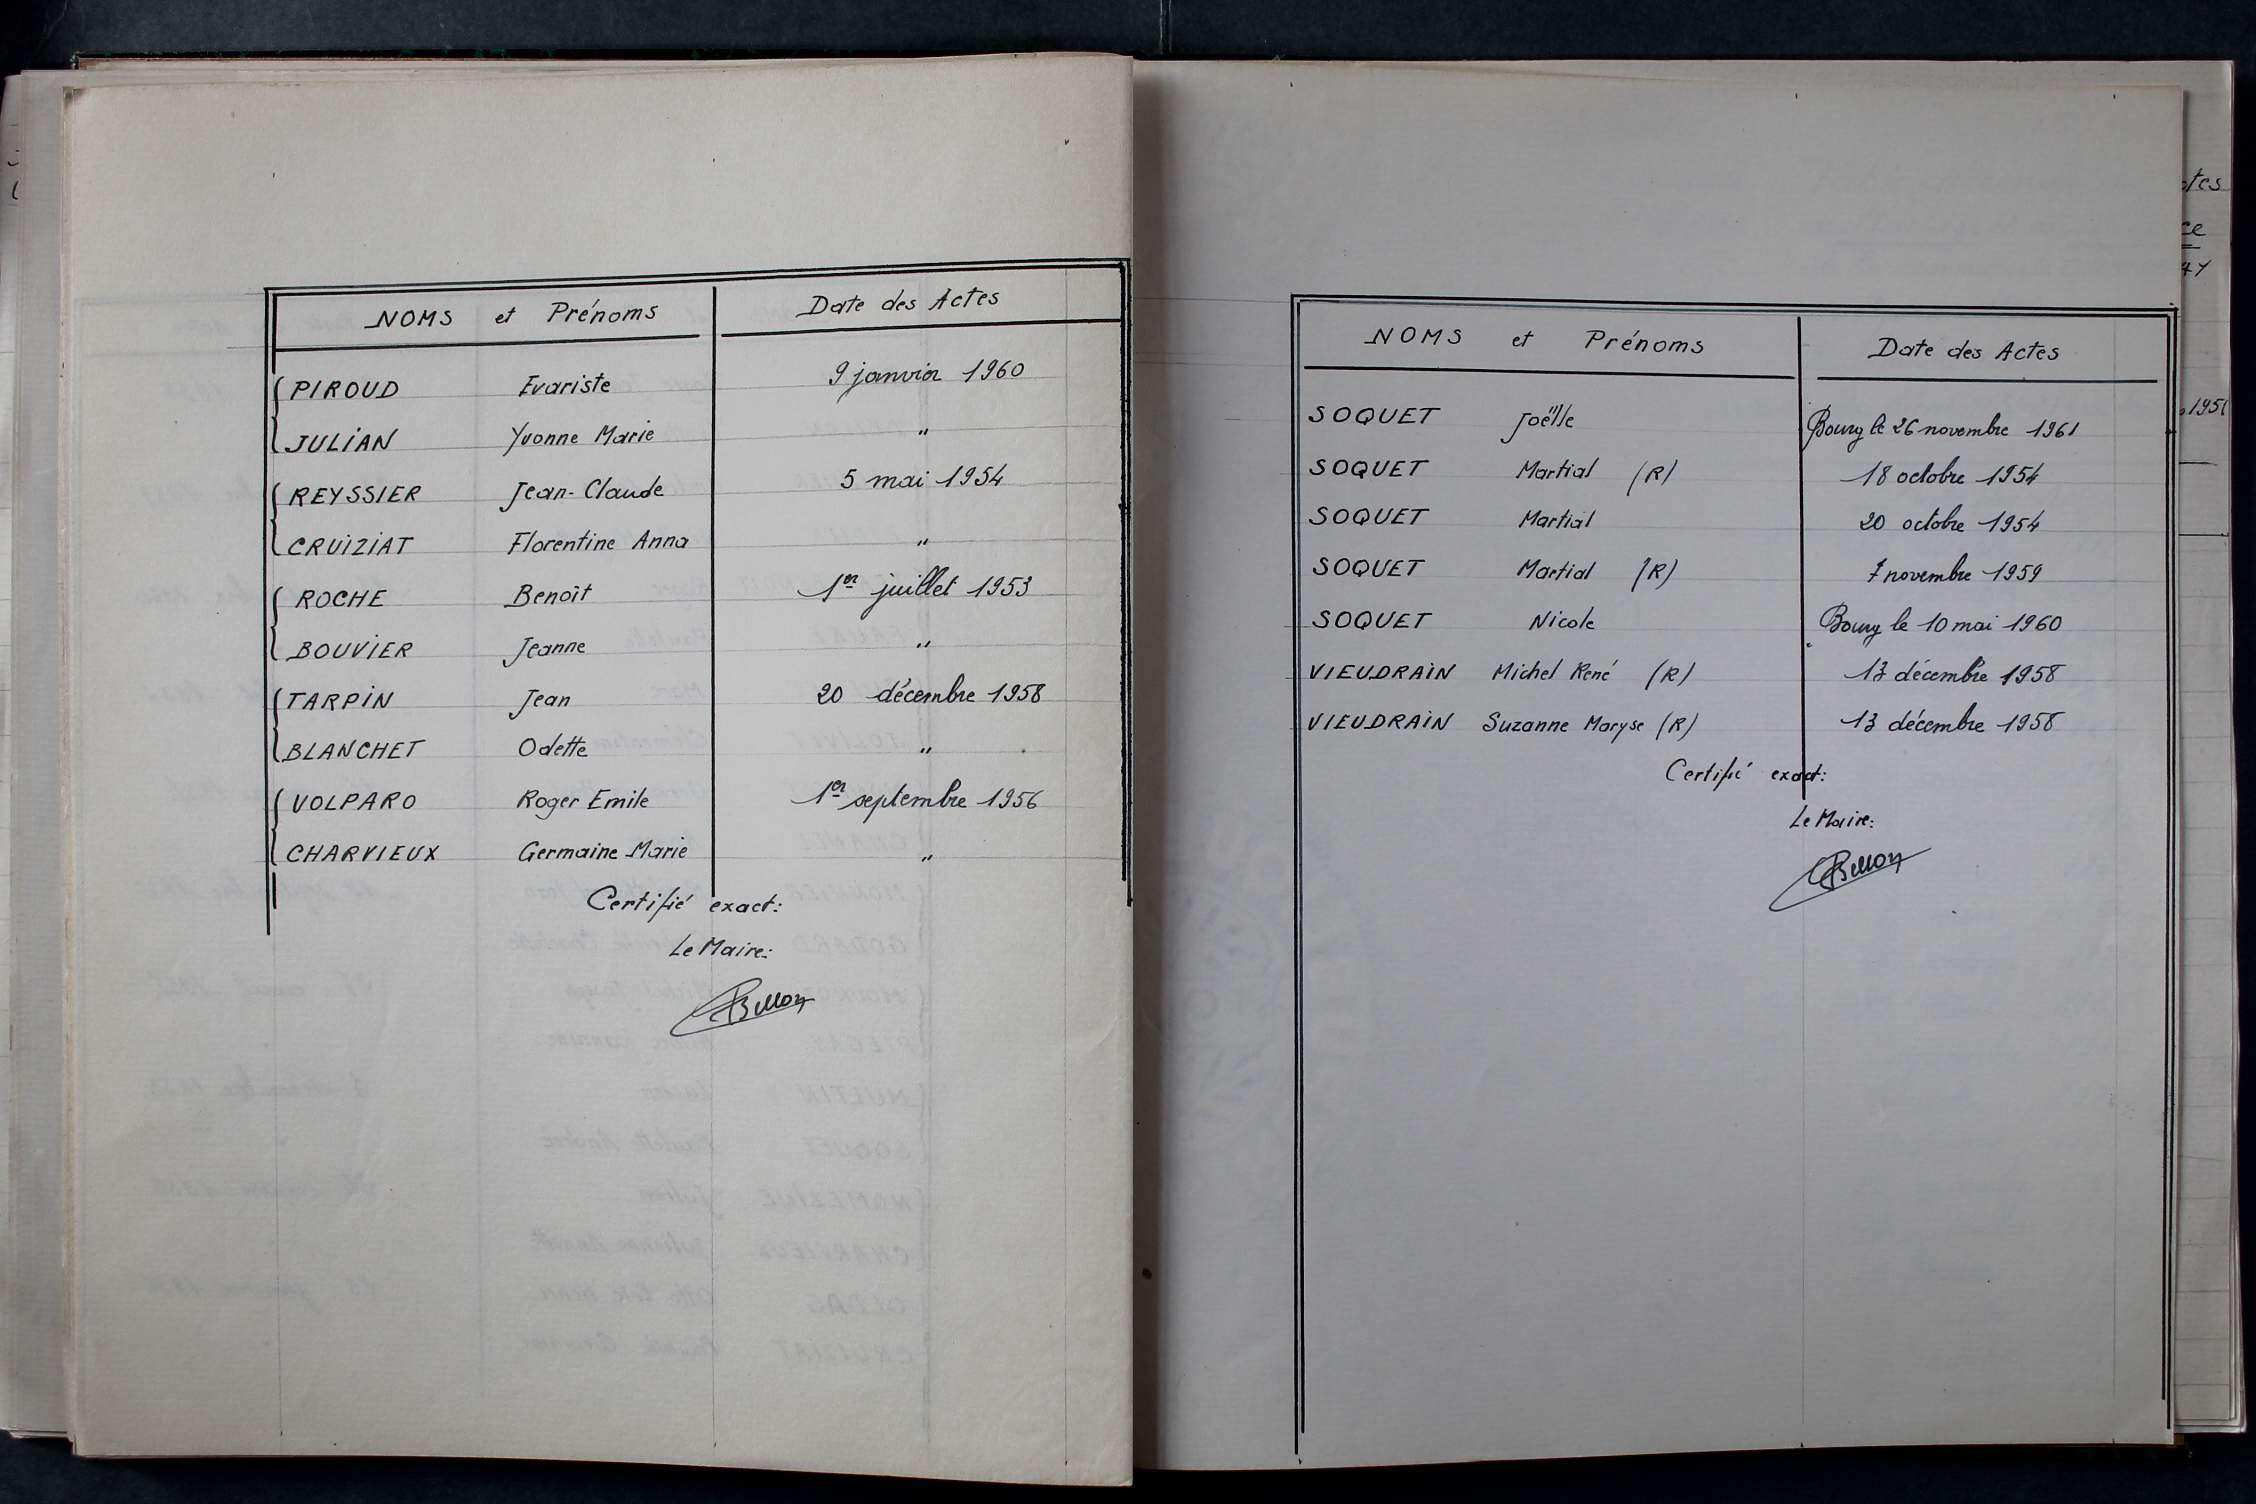 NOMS et Prénoms Date des Actes
PIROUD Evariste 9 janvier 1960
JULIAN Yvonne Marie "
REYSSIER Jean-Claude 5 mai 1954
CRUIZIAT Florentine Anna "
ROCHE Benoît 1er juillet 1953
BOUVIER Jeanne "
TARPIN Jean 20 décembre 1958
BLANCHET Odette "
VOLPARO Roger Emile 1er septembre 1956
CHARVIEUX Germaine Marie "
Certifié exact:
Le Maire:
NOMS et Prénoms Date des Actes
SOQUET Joëlle Bourg le 26 novembre 1961
SOQUET Martial (R) 18 octobre 1954
SOQUET Martial 20 octobre 1954
SOQUET Martial (R) 7 novembre 1959
SOQUET Nicole Bourg le 10 mai 1960
VIEUDRAIN Michel René (R) 13 décembre 1958
VIEUDRAIN Suzanne Maryse (R) 13 décembre 1958
Certifié exact:
Le Maire: